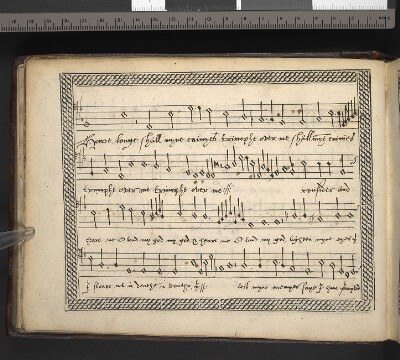 longe shall myne enimyes triumphe over me shall myne enimies
triumphe over me triumphe over me :||: consider and
heare me O lord my god my god & heare me O lord my god, lighten myne eyes yt
I sleape not in deathe, in deathe, :||: lest myne enemyes saye I have